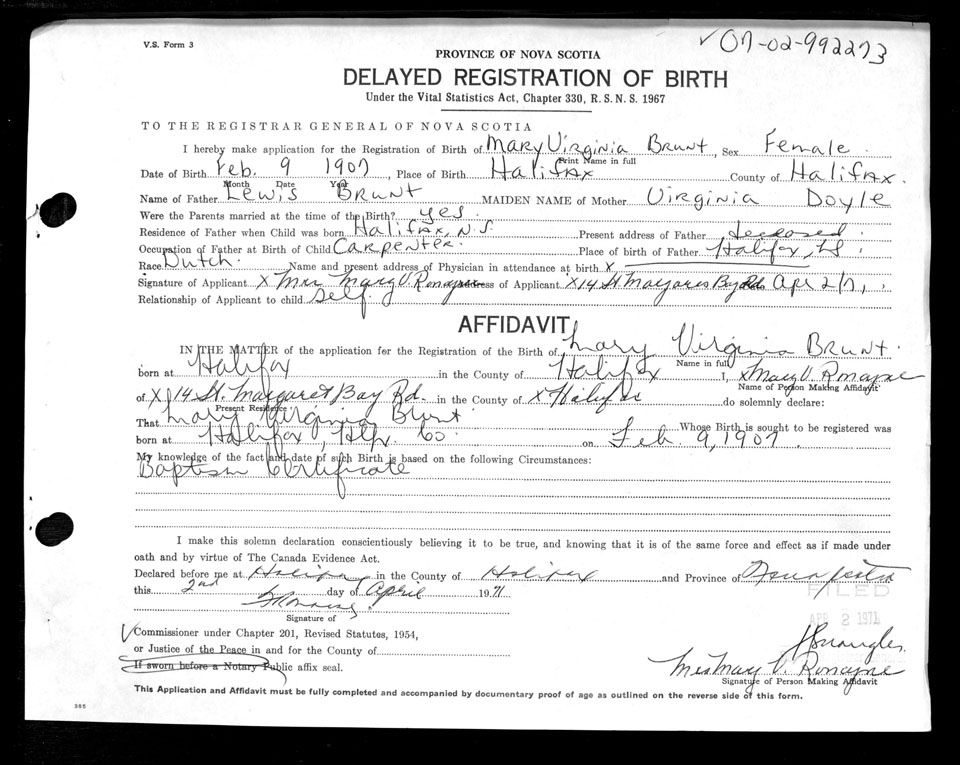 V.S. Form 3
✓07-02-992273
PROVINCE OF NOVA SCOTIA
DELAYED REGISTRATION OF BIRTH
Under the Vital Statistics Act, Chapter 330, R.S.N.S. 1967
TO THE REGISTRAR GENERAL OF NOVA SCOTIA
I hereby make application for the Registration of Birth of Mary Virginia Brunt, Sex Female
Print Name in full
Date of Birth Feb. 9 1907 Place of Birth Halifax County of Halifax.
Month Date Year
Name of Father Lewis Brunt MAIDEN NAME of Mother Virginia Doyle
Were the Parents married at the time of the Birth? yes.
Residence of Father when Child was born Halifax, N.S. Present address of Father deceased
Occupation of Father at Birth of Child Carpenter. Place of birth of Father Halifax, NS.
Race Dutch. Name and present address of Physician in attendance at birth X
Signature of Applicant X Mrs Mary V. Romayne Address of Applicant X 14 St Margarets Bay Rd Apr 2/71,
Relationship of Applicant to child Self.
AFFIDAVIT
IN THE MATTER of the application for the Registration of the Birth of Mary Virginia Brunt.
Name in full
born at Halifax in the County of Halifax I, X Mary V. Romayne
Name of Person Making Affidavit
of X 14 St. Margaret Bay Rd. in the County of X Halifax do solemnly declare:
Present Residence
That Mary Virginia Brunt Whose Birth is sought to be registered was
born at Halifax, Hfx. Co. on Feb 9, 1907.
My knowledge of the fact and date of such Birth is based on the following Circumstances:
Baptism Certificate
I make this solemn declaration conscientiously believing it to be true, and knowing that it is of the same force and effect as if made under
oath and by virtue of The Canada Evidence Act.
Declared before me at Halifax in the County of Halifax and Province of Nova Scotia
this 2nd day of April 1971
FILED
APR 2 1971
Signature of
Commissioner under Chapter 201, Revised Statutes, 1954,
or Justice of the Peace in and for the County of
If sworn before a Notary Public affix seal.
Mrs Mary V. Romayne
Signature of Person Making Affidavit
This Application and Affidavit must be fully completed and accompanied by documentary proof of age as outlined on the reverse side of this form.
385